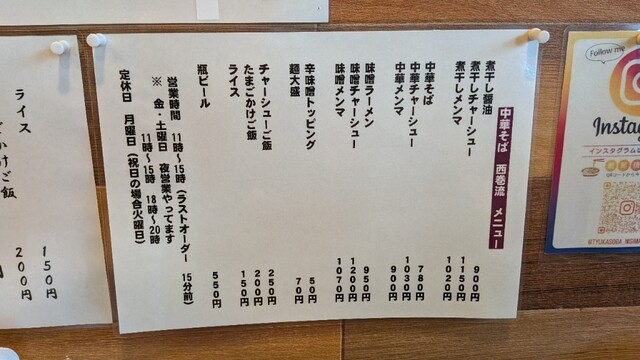 中華そば 西巻流 メニュー
煮干し醤油 900円
煮干しチャーシュー 1150円
煮干しメンマ 1020円
中華そば 780円
中華チャーシュー 1030円
中華メンマ 900円
味噌ラーメン 950円
味噌チャーシュー 1200円
味噌メンマ 1070円
辛味噌トッピング 50円
麺大盛 70円
チャーシューご飯 250円
たまごかけご飯 200円
ライス 150円
瓶ビール 550円
営業時間 11時～15時(ラストオーダー 15分前)
※ 金・土曜日 夜営業やってます
11時～15時 18時～20時
定休日 月曜日(祝日の場合火曜日)
ライス 150円
かけご飯 200円
円
Follow me
Instag
インスタグラム